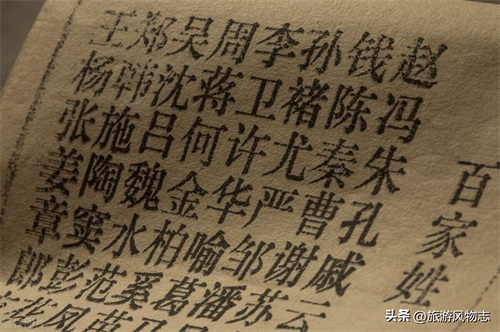 百家姓
赵钱孙李周吴郑王
冯陈褚卫蒋沈韩杨
朱秦尤许何吕施张
孔曹严华金魏陶姜
戚谢邹喻柏水窦章
云苏潘葛奚范彭郎
凤花
头条 @旅游风物志